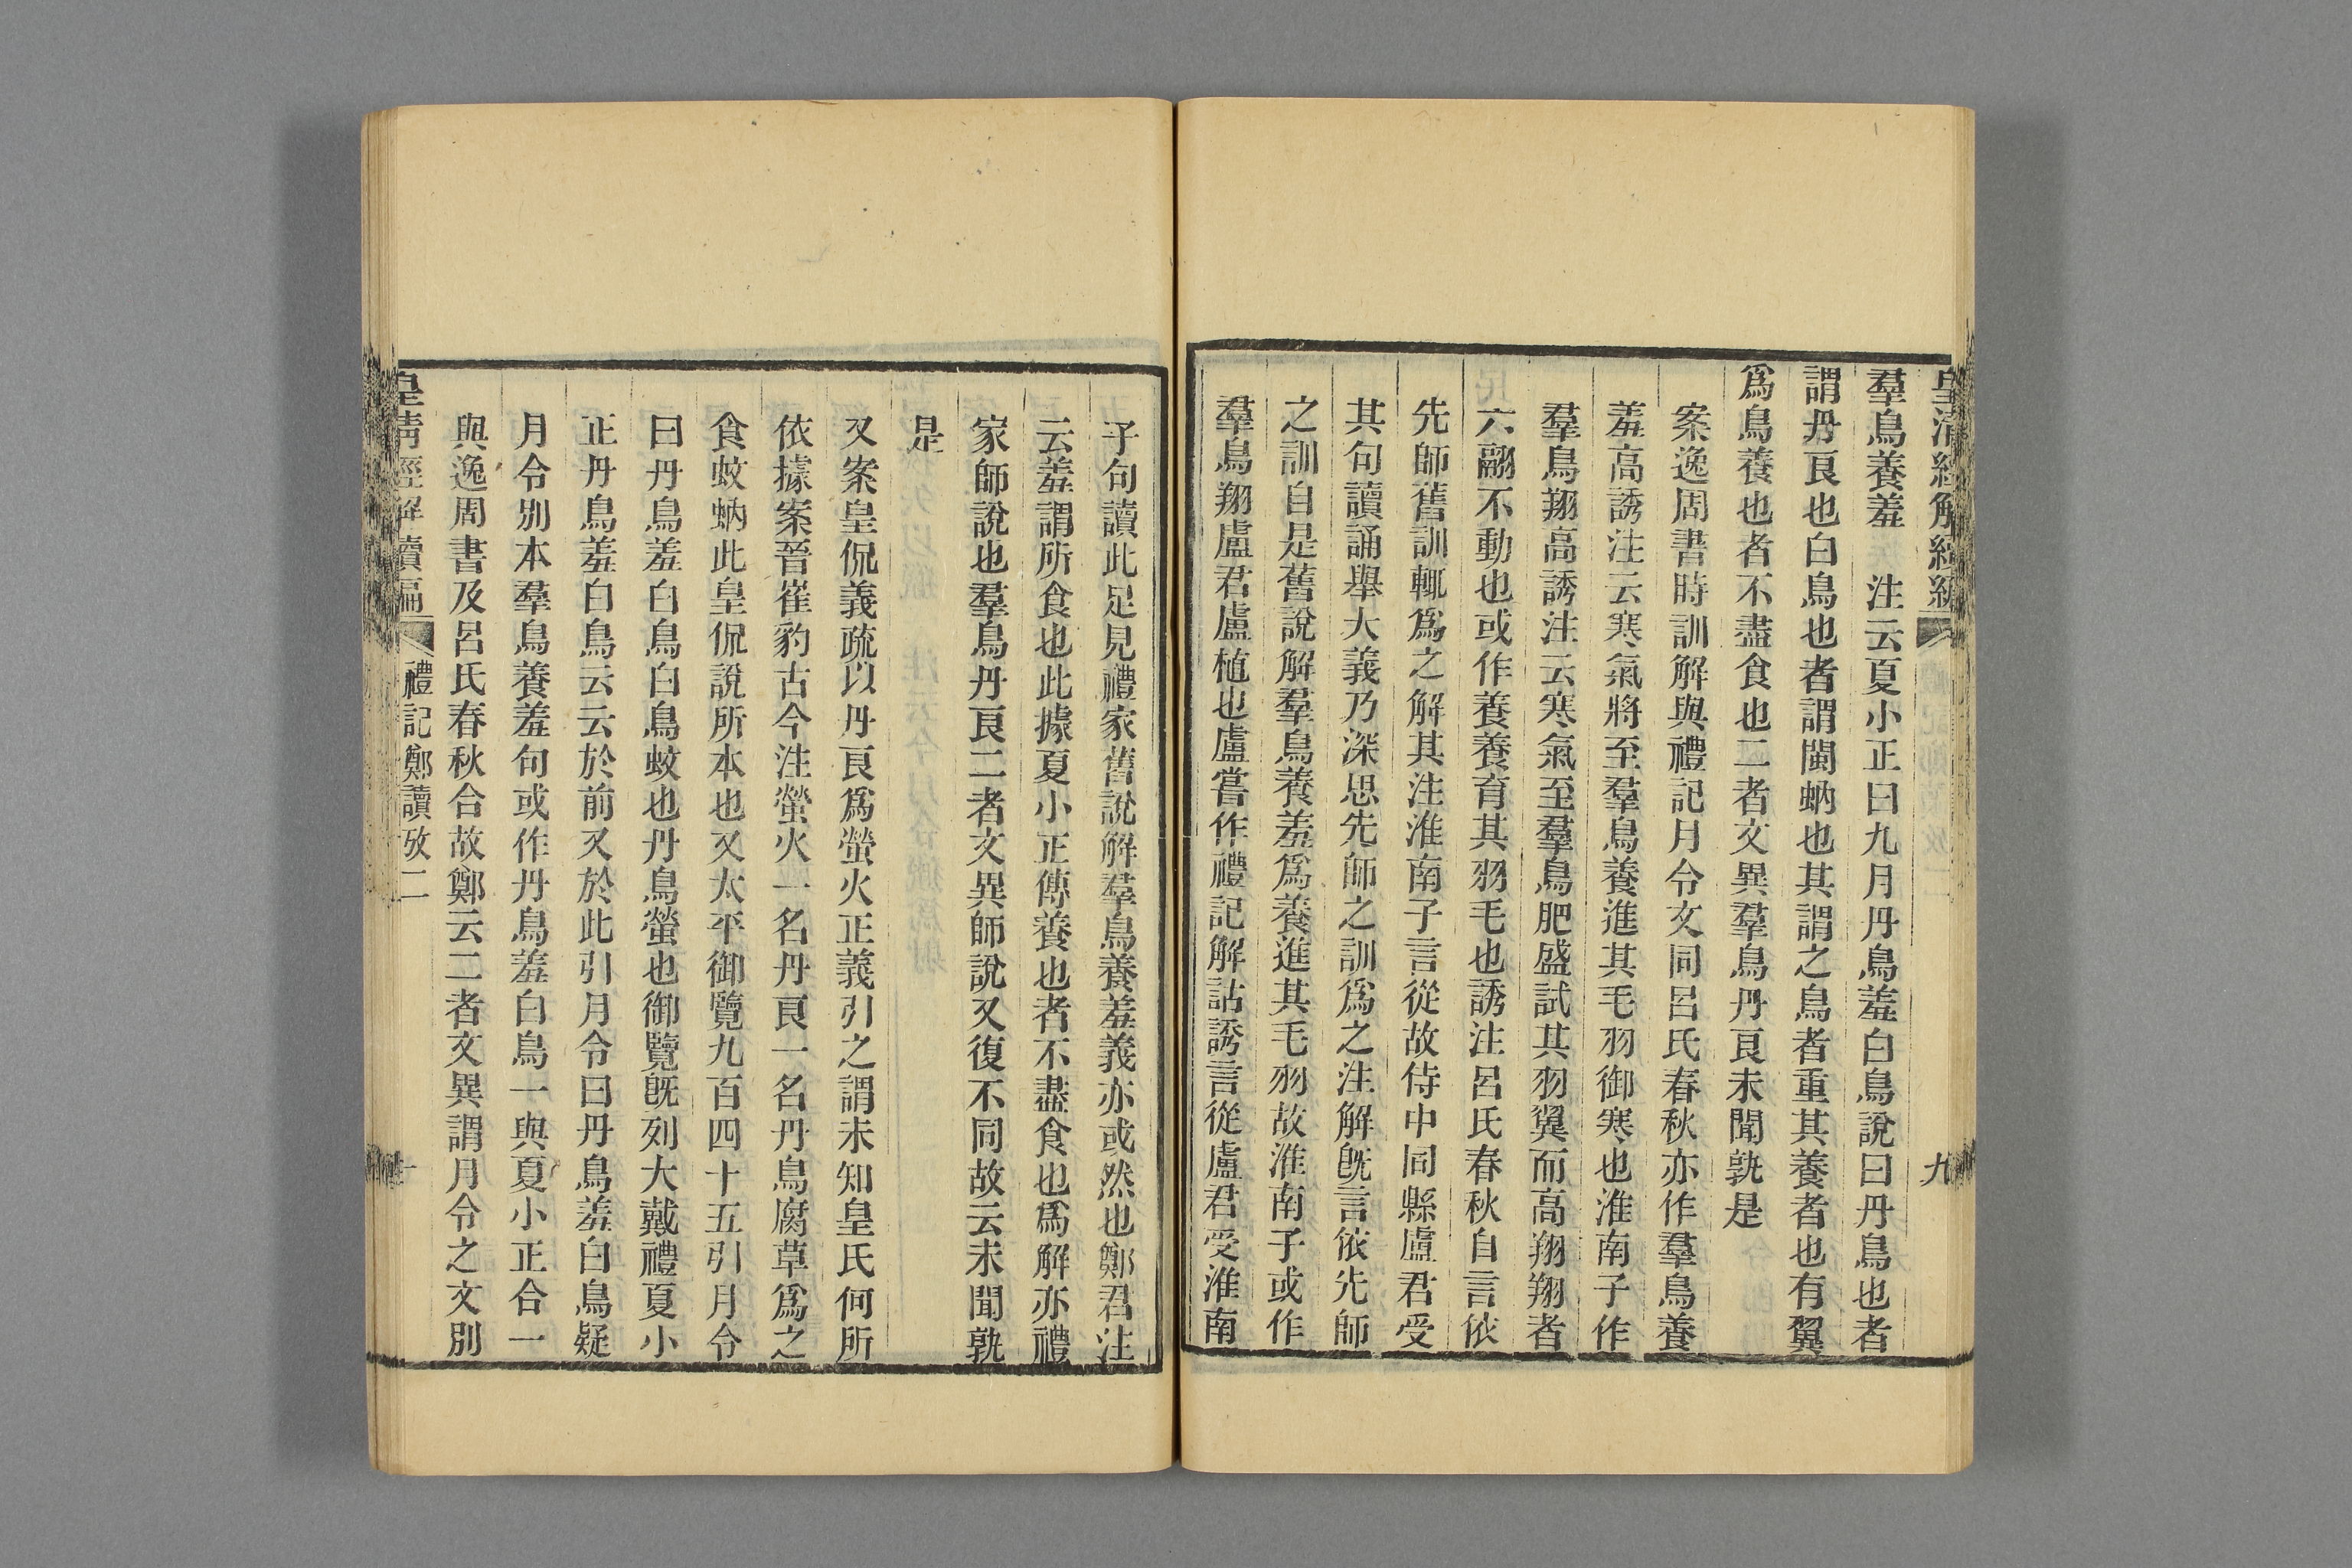 皇清經解續編
九
羣鳥養羞　注云夏小正曰九月丹鳥羞白鳥說曰丹鳥也者
謂丹良也白鳥也者謂閩蚋也其謂之鳥者重其養者也有翼
爲鳥養也者不盡食也二者文異羣鳥丹良未聞孰是
案逸周書時訓解與禮記月令文同呂氏春秋亦作羣鳥養
羞高誘注云寒氣將至羣鳥養進其毛羽御寒也淮南子作
羣鳥翔高誘注云寒氣至羣鳥肥盛試其羽翼而高翔翔者
六翮不動也或作養養育其羽毛也誘注呂氏春秋自言依
先師舊訓輒爲之解其注淮南子言從故侍中同縣盧君受
其句讀誦舉大義乃深思先師之訓爲之注解旣言依先師
之訓自是舊說解羣鳥養羞爲養進其毛羽故淮南子或作
羣鳥翔盧君盧植也盧嘗作禮記解詁誘言從盧君受淮南
子句讀此足見禮家舊說解羣鳥養羞義亦或然也鄭君注
云羞謂所食也此據夏小正傳養也者不盡食也爲解亦禮
家師說也羣鳥丹良二者文異師說又復不同故云未聞孰
是
又案皇侃義疏以丹良爲螢火正義引之謂未知皇氏何所
依據案晉崔豹古今注螢火一名丹良一名丹鳥腐草爲之
食蚊蚋此皇侃說所本也又太平御覽九百四十五引月令
曰丹鳥羞白鳥白鳥蚊也丹鳥螢也御覽旣列大戴禮夏小
正丹鳥羞白鳥云云於前又於此引月令曰丹鳥羞白鳥疑
月令別本羣鳥養羞句或作丹鳥羞白鳥一與夏小正合一
與逸周書及呂氏春秋合故鄭云二者文異謂月令之文別
皇清經解續編
禮記鄭讀攷二
十